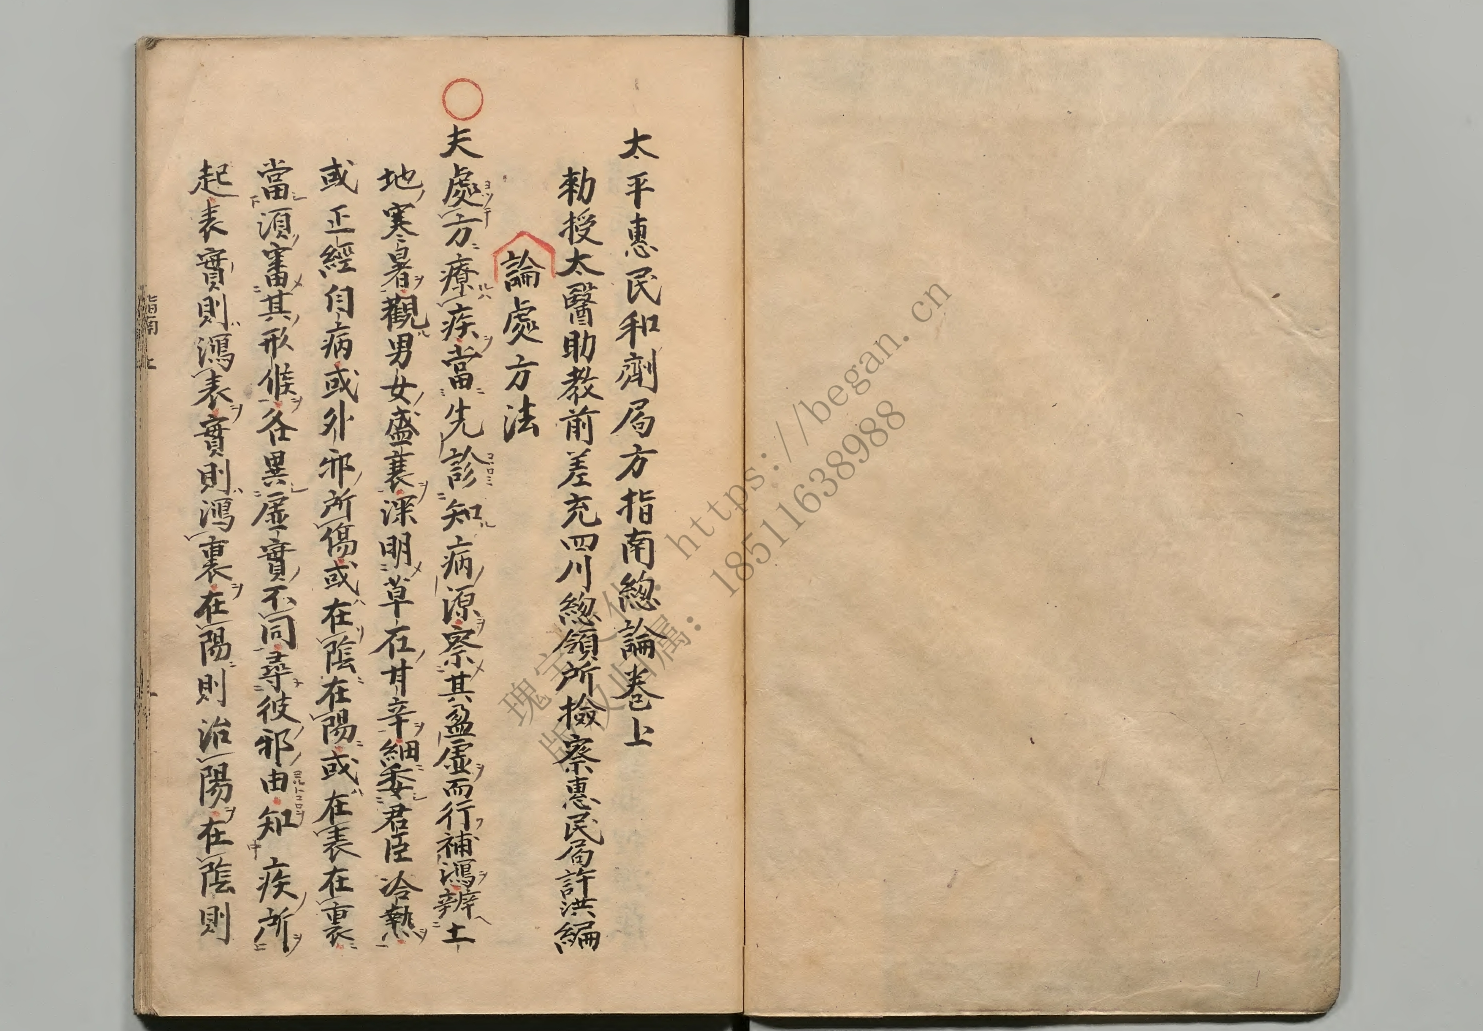 太平惠民和劑局方指南緫論卷上
勅授太醫助教前差充四川緫領所撿察惠民局許洪編
論處方法
夫處方療疾當先診知病源察其盈虛而行補瀉辨土
地寒暑觀男女盛衰深明草石甘辛細委君臣冷熱
或正經自病或外邪所傷或在陰在陽或在表在裏
當須審其形候各異虛實不同尋彼邪由知疾所
起表實則瀉表裏實則瀉裏在陽則治陽在陰則
指南上
瑰宝文化：https://began.cn
版权归属：18511638988